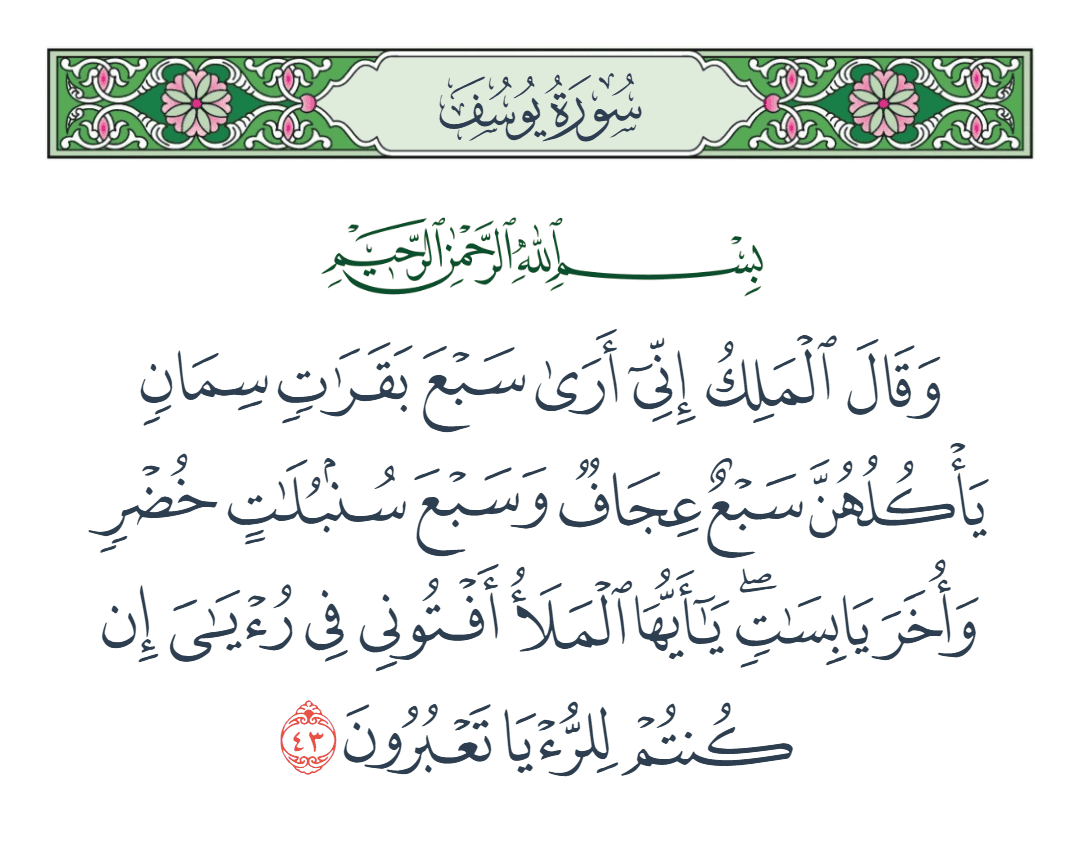 سُورَةُ يُوسُفَ
بِسْمِ ٱللَّهِ ٱلرَّحْمَٰنِ ٱلرَّحِيمِ
وَقَالَ ٱلْمَلِكُ إِنِّىٓ أَرَىٰ سَبْعَ بَقَرَٰتٍ سِمَانٍ
يَأْكُلُهُنَّ سَبْعٌ عِجَافٌ وَسَبْعَ سُنۢبُلَٰتٍ خُضْرٍ
وَأُخَرَ يَابِسَٰتٍ ۖ يَٰٓأَيُّهَا ٱلْمَلَأُ أَفْتُونِى فِى رُءْيَٰىَ إِن
كُنتُمْ لِلرُّءْيَا تَعْبُرُونَ ٤٣